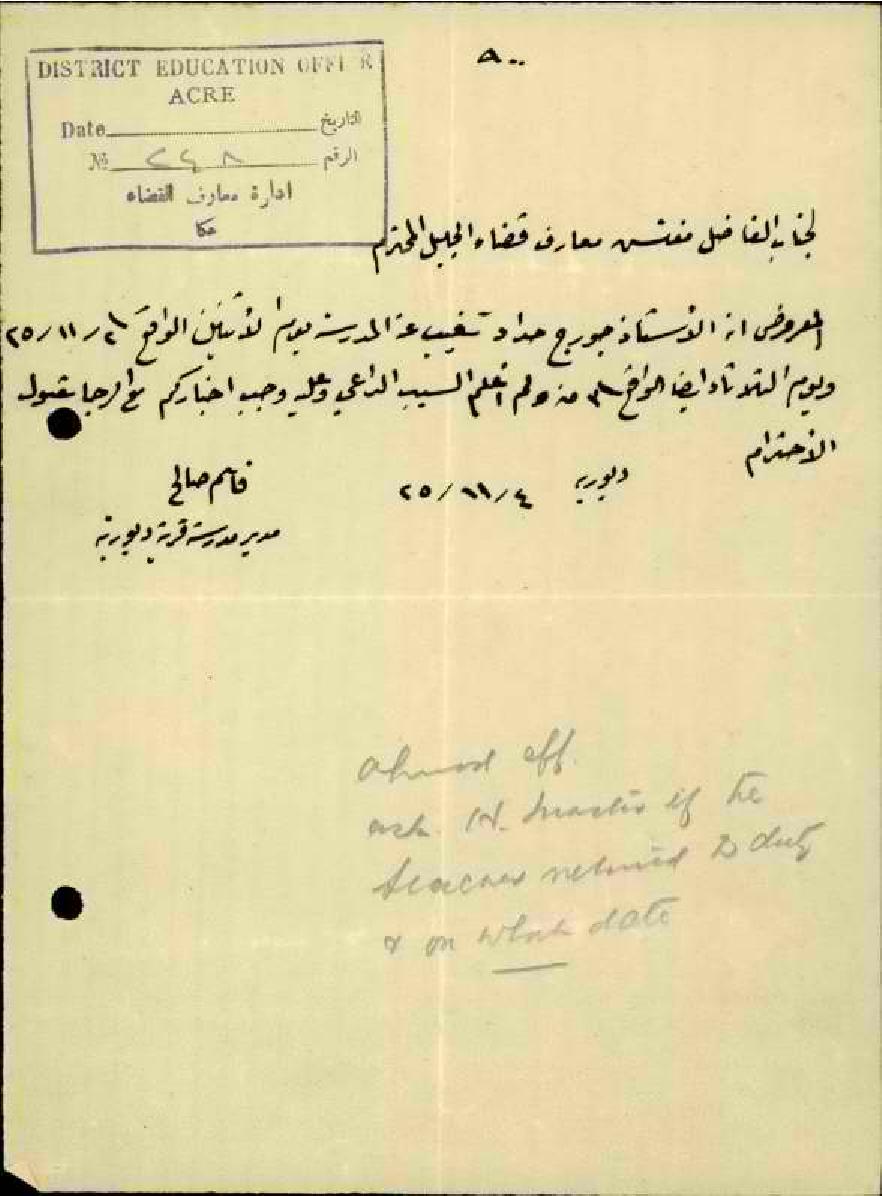 ٨٠٠
DISTRICT EDUCATION OFFI R
ACRE
Date التاريخ
№ ٢٤٨ الرقم
ادارة معارف القضاء
عكا
لجناب الفاضل مفتش معارف قضاء الجليل المحترم
المعروض ان الأستاذ جورج حداد تغيب عن المدرسة يوم الأثنين الواقع ٢/١١/٢٥
ويوم الثلاثاء ايضا الواقع ٣ منه ولم اعلم السبب الداعي وعليه وجب اخباركم مع الرجا بقبول
الأحترام
دبورية ٤/١١/٢٥
قاسم صالح
مدير مدرسة قرية دبورية
Ahmad eff.
ask H. Master if the
teacher returned to duty
& on what date